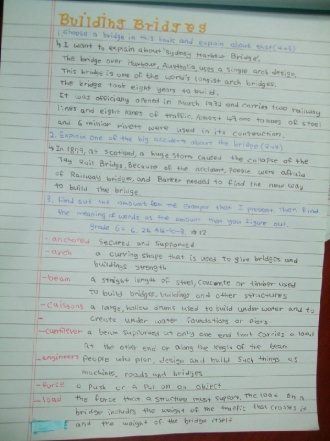 Building Bridges
1. Choose a bridge in this book and explain about that
↳ I want to explain about 'Sydney Harbour Bridge'.
The bridge over Harbour, Australia uses a single arch design.
This bridge is one of the world's longest arch bridges.
The bridge took eight years to build.
It was officially opened in March 1932 and carries two railway
lines and eight lanes of traffic. About tonnes of steel
and 6 million rivets were used in its construction.
2. Explain one of the big accident about the bridge
↳ In at Scotland, a huge storm caused the collapse of the
Tay Rail Bridge. Because of the accident, people were afraid
of Railway bridges, and Barker needed to find the new way
to build the bridge.
3. Find out the amount for the that I present. Then find
the meaning of words as the amount than your figure out.
- anchored secured and supported
- arch a curving shape that is used to give bridges and
buildings strength
- beam A straight length of steel, concrete or timber used
to build bridges, buildings and other structures
- caissons a large, hollow drums used to build under water and to
create under water foundations or piers
- cantilever a beam supported at only one end that carries a load
at the other end or along the length of the beam
- engineers people who plan, design and build such things as
machines, roads and bridges
- force a push or a pull on an object
- load the force that a structure must support, the load on a
bridge includes the weight of the traffic that crosses it
and the weight of the bridge itself